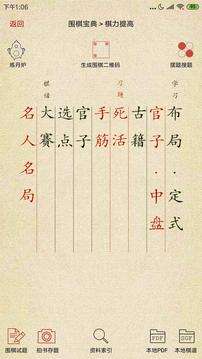 下午1:06
返回
围棋宝典 > 棋力提高
练丹炉
生成围棋二维码
摆题搜题
学习
布局·定式
官子·中盘
古籍
习题
死活
手筋
官子
选点
棋谱
大赛
名人名局
PDF
SGF
围棋试题
拍书存题
资料索引
本地PDF
本地棋谱